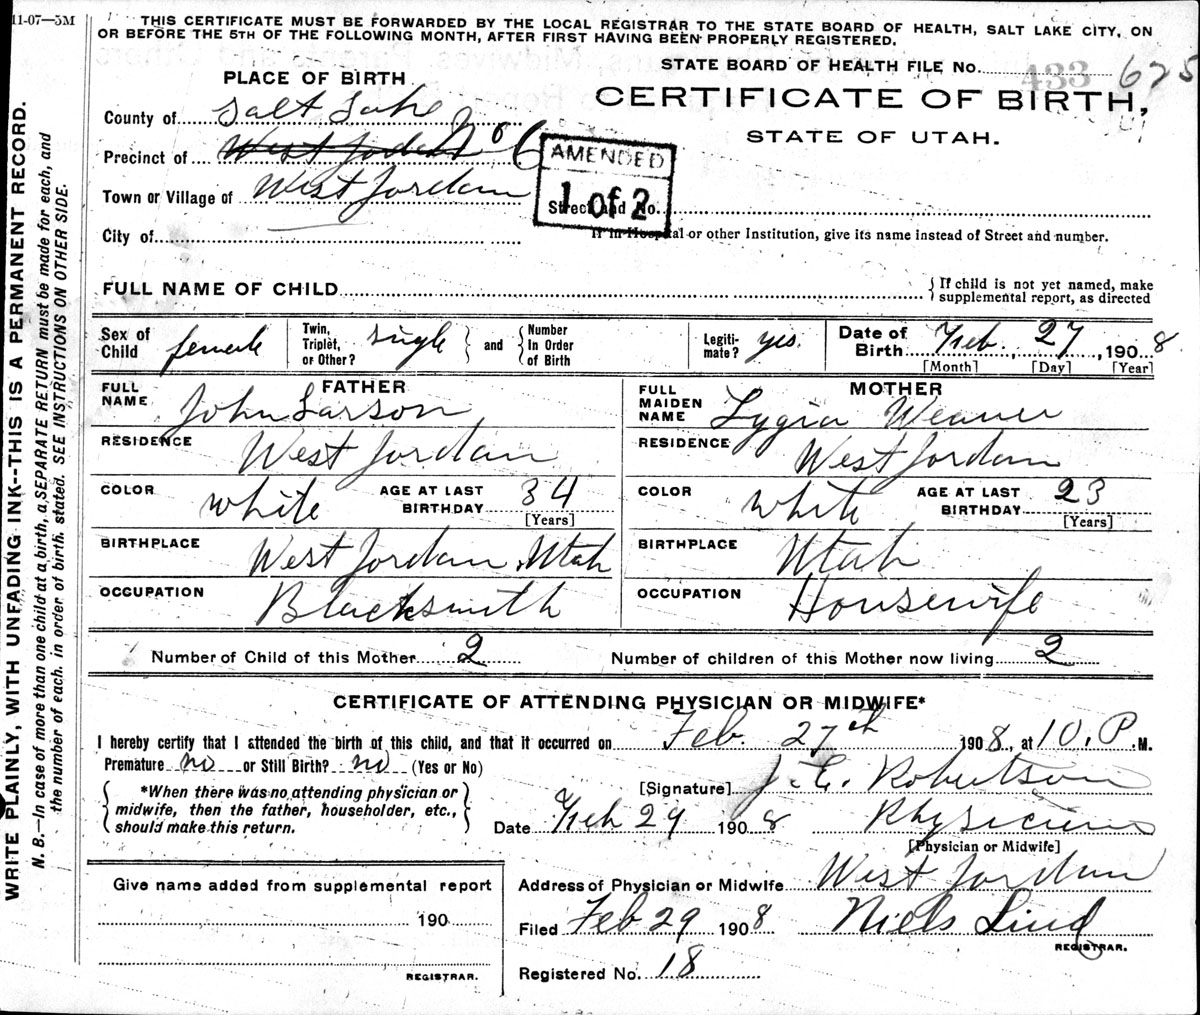 11-07—5M
THIS CERTIFICATE MUST BE FORWARDED BY THE LOCAL REGISTRAR TO THE STATE BOARD OF HEALTH, SALT LAKE CITY, ON
OR BEFORE THE 5TH OF THE FOLLOWING MONTH, AFTER FIRST HAVING BEEN PROPERLY REGISTERED.
STATE BOARD OF HEALTH FILE No. 433 625
PLACE OF BIRTH
CERTIFICATE OF BIRTH,
STATE OF UTAH.
County of Salt Lake
Precinct of West Jordan No 6
Town or Village of West Jordan
AMENDED
1 of 2
Street and No.
City of
If in Hospital or other Institution, give its name instead of Street and number.
FULL NAME OF CHILD
{If child is not yet named, make
supplemental report, as directed
Sex of Child female
Twin, Triplet, or Other? single } and { Number In Order of Birth
Legitimate? yes.
Date of Birth Feb. 27, 1908
[Month] [Day] [Year]
FATHER
FULL NAME John Larson
RESIDENCE West Jordan
COLOR white AGE AT LAST BIRTHDAY 34
[Years]
BIRTHPLACE West Jordan, Utah
OCCUPATION Blacksmith
MOTHER
FULL MAIDEN NAME Lygia Weaver
RESIDENCE West Jordan
COLOR white AGE AT LAST BIRTHDAY 23
[Years]
BIRTHPLACE Utah
OCCUPATION Housewife
Number of Child of this Mother 2 Number of children of this Mother now living 2
CERTIFICATE OF ATTENDING PHYSICIAN OR MIDWIFE*
I hereby certify that I attended the birth of this child, and that it occurred on Feb. 27th 1908, at 10, P.M.
Premature no or Still Birth? no (Yes or No)
[Signature] J. E. Robertson
{ *When there was no attending physician or
midwife, then the father, householder, etc.,
should make this return. }
Date Feb 29 1908 Physician
[Physician or Midwife]
Give name added from supplemental report
190
REGISTRAR.
Address of Physician or Midwife West Jordan
Filed Feb 29 1908 Niels Lind
REGISTRAR.
Registered No. 18
WRITE PLAINLY, WITH UNFADING INK--THIS IS A PERMANENT RECORD.
N. B.—In case of more than one child at a birth, a SEPARATE RETURN must be made for each, and
the number of each, in order of birth, stated. SEE INSTRUCTIONS ON OTHER SIDE.